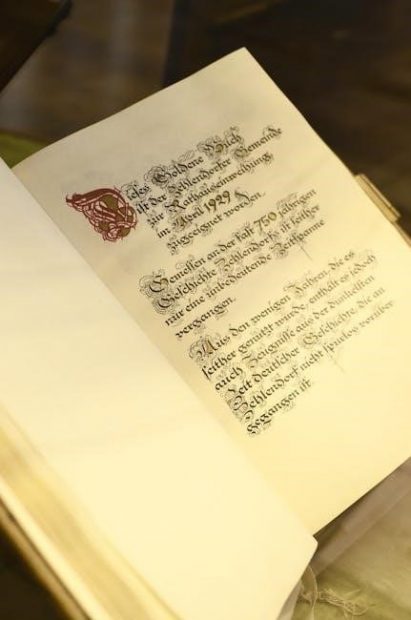 Dieses Goldene Buch
ist der Zehlendorfer Gemeinde
zur Rathauseinweihung
im April 1929
zugeeignet worden.
Gemessen an der fast 750 jährigen
Geschichte Zehlendorfs, ist seither
nur eine unbedeutende Zeitspanne
vergangen.
Aus den wenigen Jahren, die es
seither genützt wurde, enthält es jedoch
auch Zeugnisse aus der dunkelsten
Zeit deutscher Geschichte, die an
Zehlendorf nicht spurlos vorüber
gegangen ist.